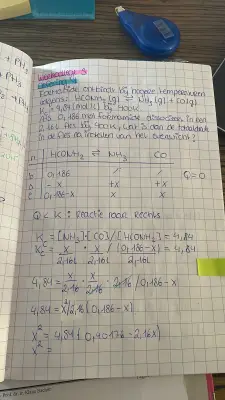 Oefening 4
Formamide ontbindt bij hogere temperaturen
volgens: HCONH₂ (g) ⇌ NH₃ (g) + CO (g).
Kc = 4,84 (mol/L) bij 400K
Als 0,186 mol formamide dissocieert in een
2,16L fles bij 400K, wat is dan de totaaldruk
in de fles bij het bereiken van het evenwicht?
n | HCONH₂ ⇌ NH₃ CO
b | 0,186 / / Q=0
-x +x +x
0,186-x x x
Q < K : Reactie naar Rechts
Kc = [NH₃][CO]/[HCONH₂] = 4,84
Kc = x/2,16L · x/2,16L / (0,186-x)/2,16L = 4,84
4,84 = x/2,16 · x/2,16 · 2,16/0,186-x
4,84 = x²/2,16(0,186-x)
x² = 4,84(0,40176 - 2,16x)
x² =